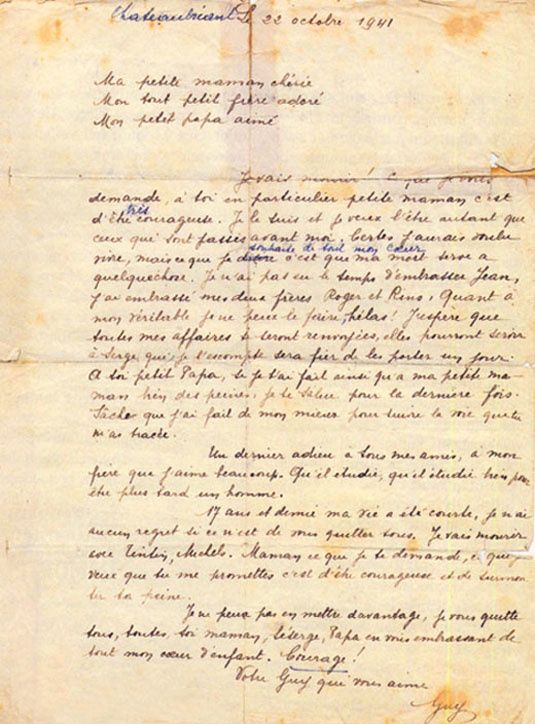 Chateaubriant Le 22 octobre 1941
Ma petite maman chérie
Mon tout petit frère adoré
Mon petit papa aimé
Je vais mourir! Ce que je vous
demande, à toi en particulier petite maman c'est
d'être très courageuse. Je le suis et je veux l'être autant que
ceux qui sont passés avant moi. Certes j'aurais voulu
vivre, mais ce que je souhaite de tout mon cœur c'est que ma mort serve a
quelquechose. Je n'ai pas eu le temps d'embrasser Jean,
j'ai embrassé mes deux frères Roger et Rino, Quant à
mon véritable je ne peux le faire, hélas! J'espère que
toutes mes affaires te seront renvoyées, elles pourront servir
à Serge, qui, je l'escompte sera fier de les porter un jour.
A toi petit Papa, si je t'ai fait ainsi qu'a ma petite ma-
man bien des peines, je te salue pour la dernière fois.
Sache que j'ai fait de mon mieux pour suivre la voie que tu
m'as tracée.
Un dernier adieu à tous mes amis, à mon
frère que j'aime beaucoup. Qu'il étudie, qu'il étudie bien pour
être plus tard un homme.
17 ans et demie ma vie a été courte, je n'ai
aucun regret si ce n'est de vous quitter tous. Je vais mourir
avec Tintin, Michels. Maman ce que je te demande, ce que je
veux que tu me promettes c'est d'être courageuse et de surmon-
ter ta peine.
Je ne peux pas en mettre davantage, je vous quitte
tous, toutes, toi maman, Séserge, Papa en vous embrassant de
tout mon cœur d'enfant. Courage!
Votre Guy qui vous aime
Guy